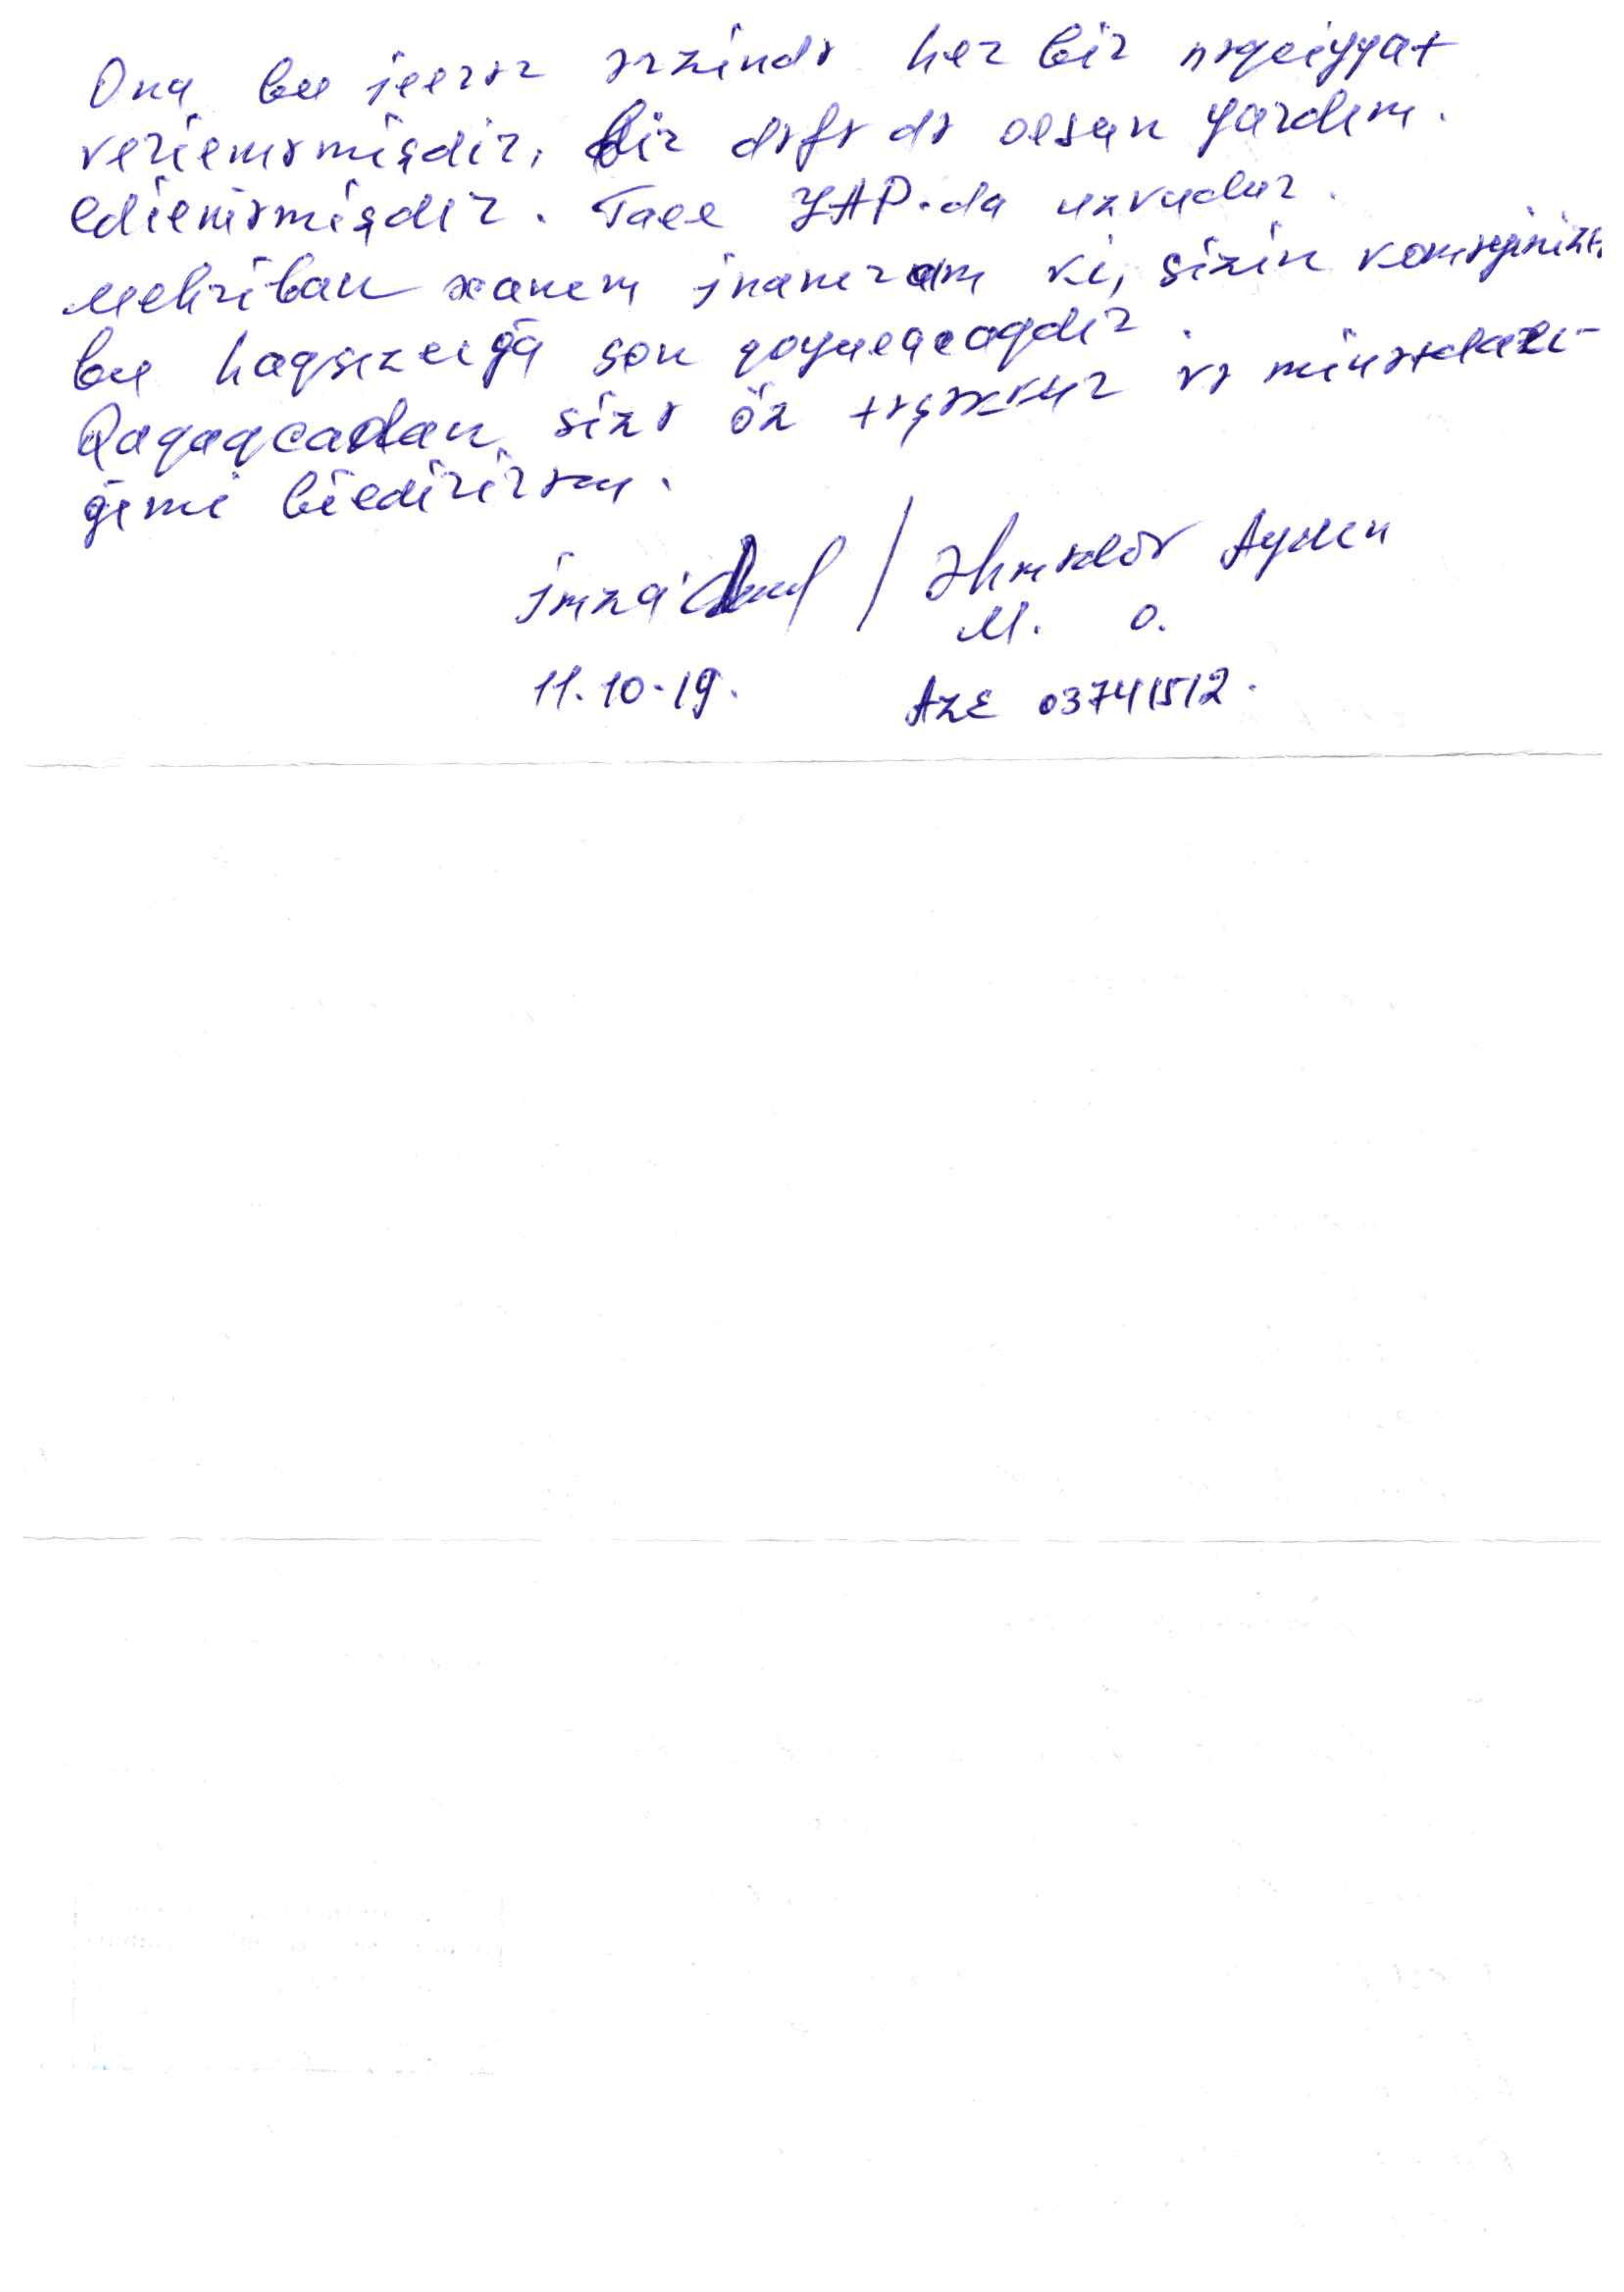 Ona bu illər ərzində her bir nəqliyyat
verilməmişdir, bir dəfə də olsun yardım.
edilməmişdir. Tale YAP-da uzvudur.
Mehriban xanım inanıram ki, sizin köməyinizlə
bu haqsızlığa son qoyulacaqdır.
Qabaqcadan sizə öz təşəkkür və minətdarlı-
ğımı bildirirəm.
İmza / Əhmədov Aydın
M. O.
11.10-19. AZE 03741512.